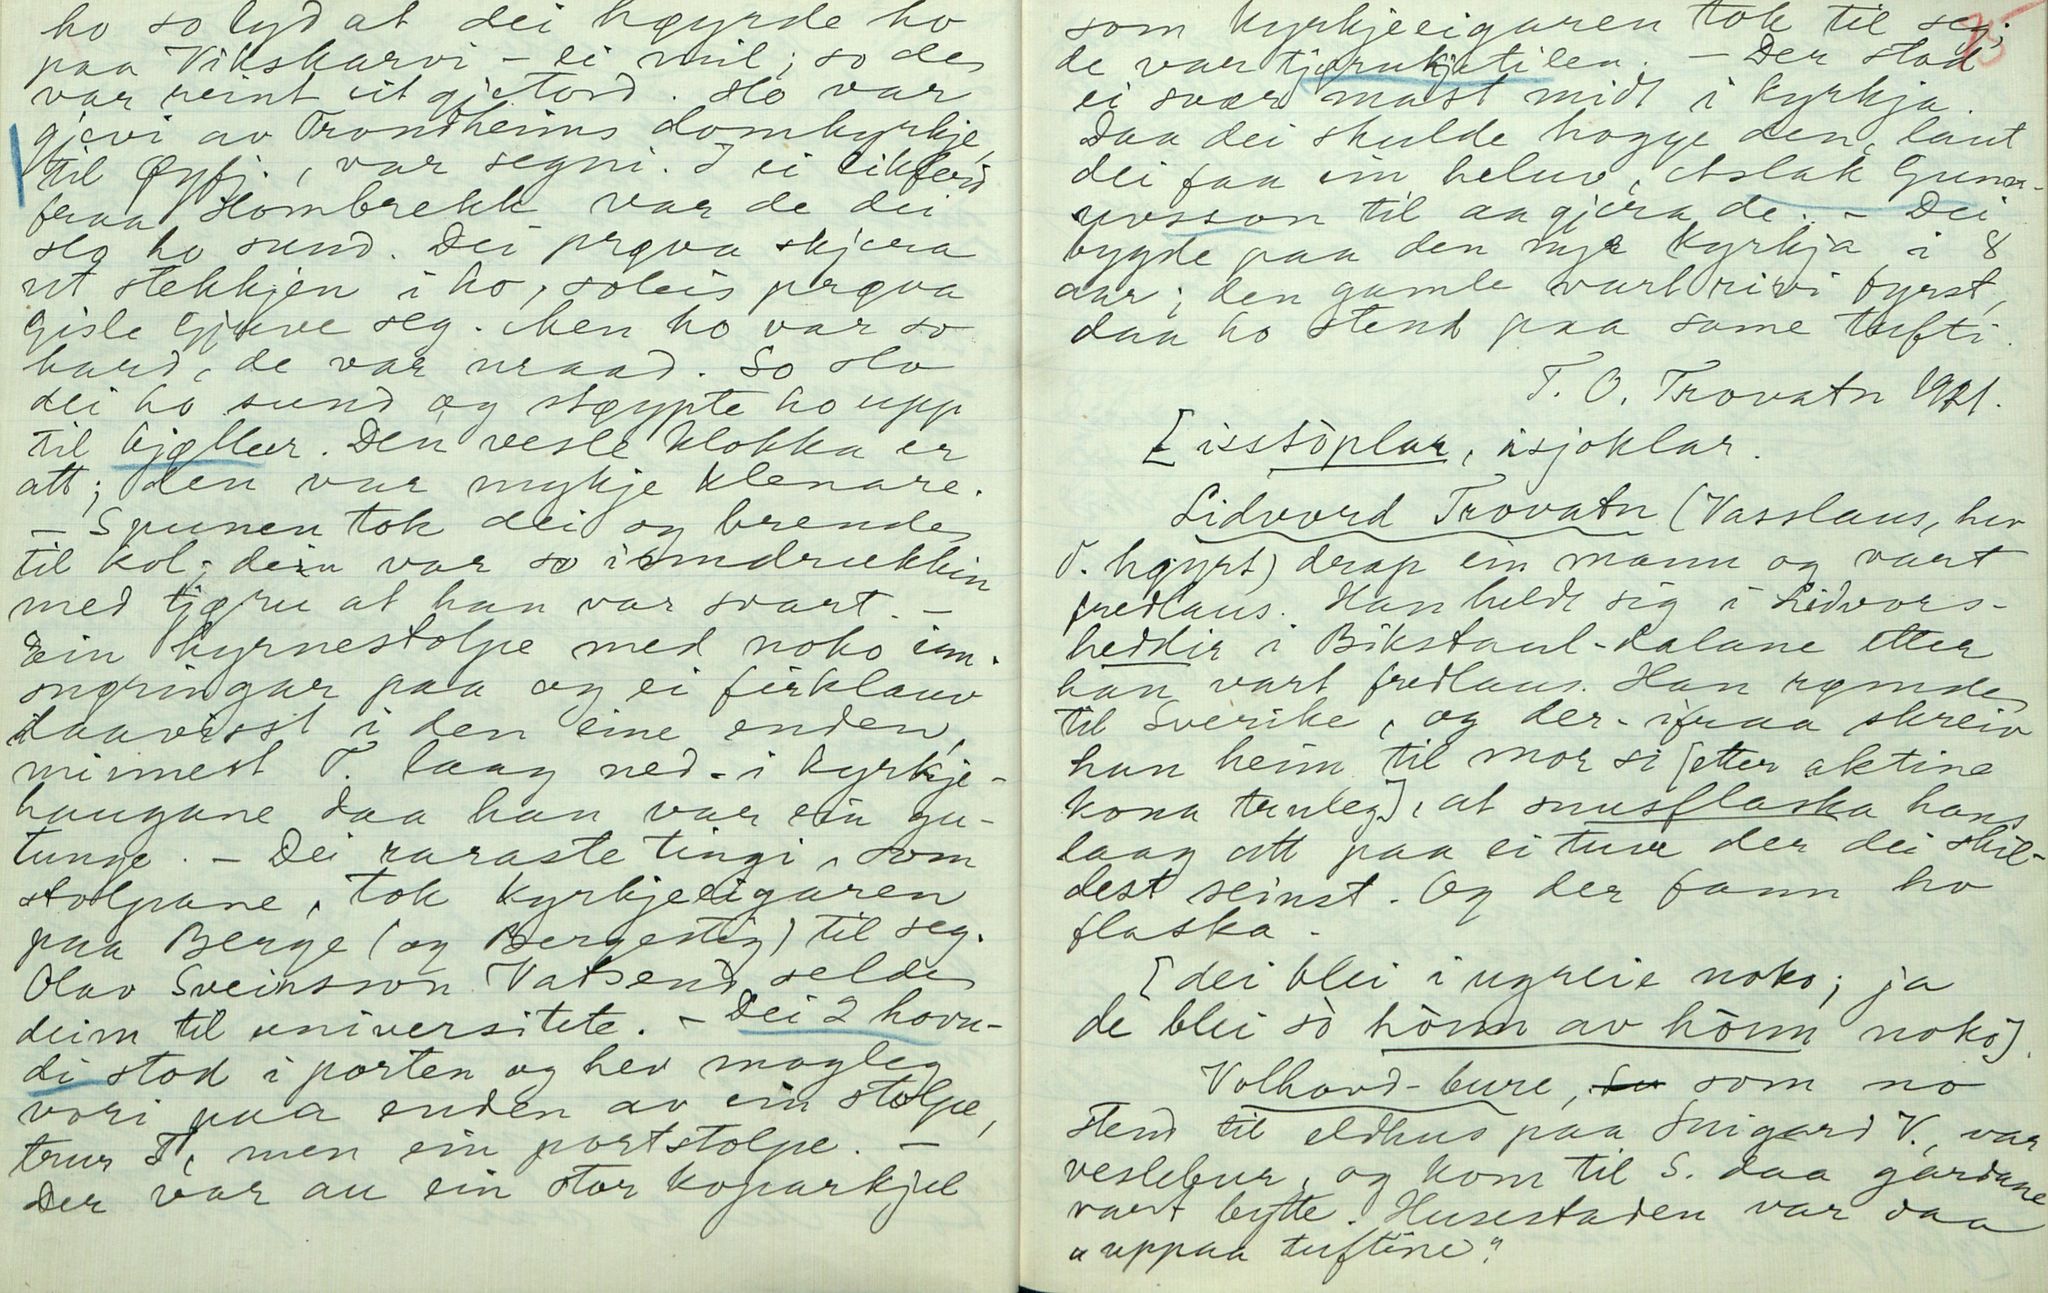 ho so lyd at dei høyrde ho
paa Vikskarvi - ei mil; so de
var reint eit gjetord. Ho var
gjevi av Trondheims domkyrkje,
til Øyfj., var segni. I ei likferd
fraa Hombrekk var de dei
slo ho sund. Dei prøva skjera
ut stekkjen i ho, soleis prøva
Gisle Gjuve seg. Men ho var so
hard, de var uraad. So slo
dei ho sund og støypte ho upp
til bjøllur. Den vesle klokka er
att; den var mykje klenare.
- Spunen tok dei og brende
til kol; dein var so inndrukkin
med tjøru at han var svart. -
Ein hyrnestolpe med noko inn-
snøringar paa og ei firklauv
daavisst i den eine enden,
minnest T. laag ned-i kyrkje-
haugane daa han var ein gu-
tunge. - Dei raraste tingi, som
stolpane, tok kyrkjeeigaren
paa Berge (og Bergestig) til seg.
Olav Sveinsson Vatsend selde
deim til universitete. - Dei 2 hovu-
di stod i porten og hev mogleg
vori paa enden av ein stolpe,
trur T, men ein portstolpe. -
Der var au ein stor koparkjel
som kyrkjeeigaren tok til seg;
95
de var tjørukjetilen. - Der stod
ei svær mast midt i kyrkja.
Daa dei skulde hogge den, laut
dei faa ein heluv, Aslak Gunn-
uvsson til aa gjera de. - Dei
bygde paa den nye kyrkja i 8
aar; den gamle vart rivi fyrst,
daa ho stend paa same tufti.
T. O. Trovatn 1921.
[isstöplar, isjoklar.
Lidvord Trovatn (Vasslaus, hev
T. høyrt) drap ein mann og vart
fredlaus. Han heldt sig i Lidvors-
heddir i Bikstaul-dalane etter
han vart fredlaus. Han rømde
til Sverike, og der-ifraa skreiv
han heim til mor si [etter aktine
kona truleg], at snusflaska hans
laag att paa ei tuve der dei skil-
dest seinst. Og der fann ho
flaska.
[dei blei i ugreie noko; ja
de blei so hònn av hònn noko].
Volhovd-bure, som no
stend til eldhus paa Snigard V., var
veslebur, og kom til S. daa gardane
vart bytte. Husestaden var daa
"uppaa tuftine".